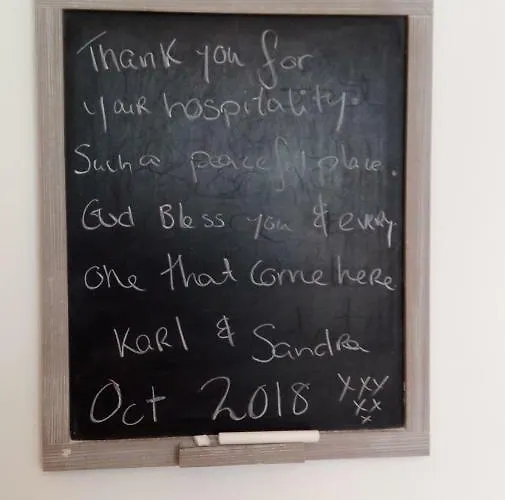 Thank you for
your hospitality.
Such a peaceful place.
God Bless you & every
one that come here
Karl & Sandra
Oct 2018 xxx
xx
x